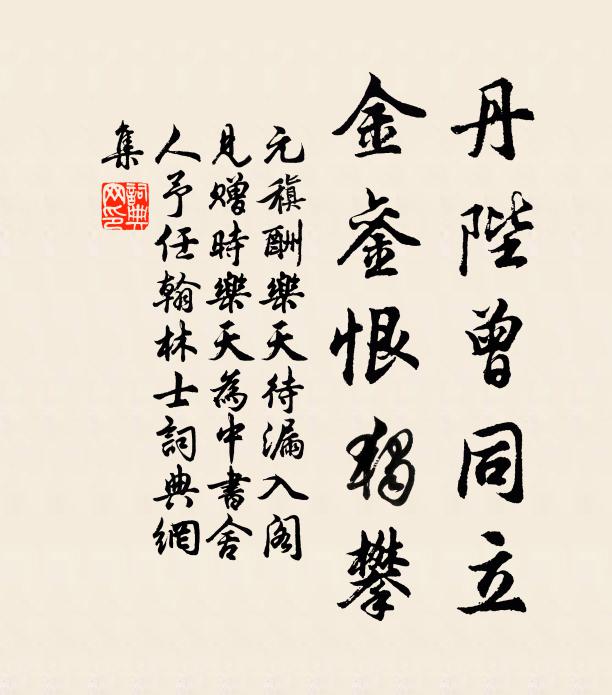 丹陛曾同立
金銮恨獨攀
元稹酬樂天待漏入阁
見赠時樂天為中書舍
人予任翰林士詞典網
集
詞典
网印